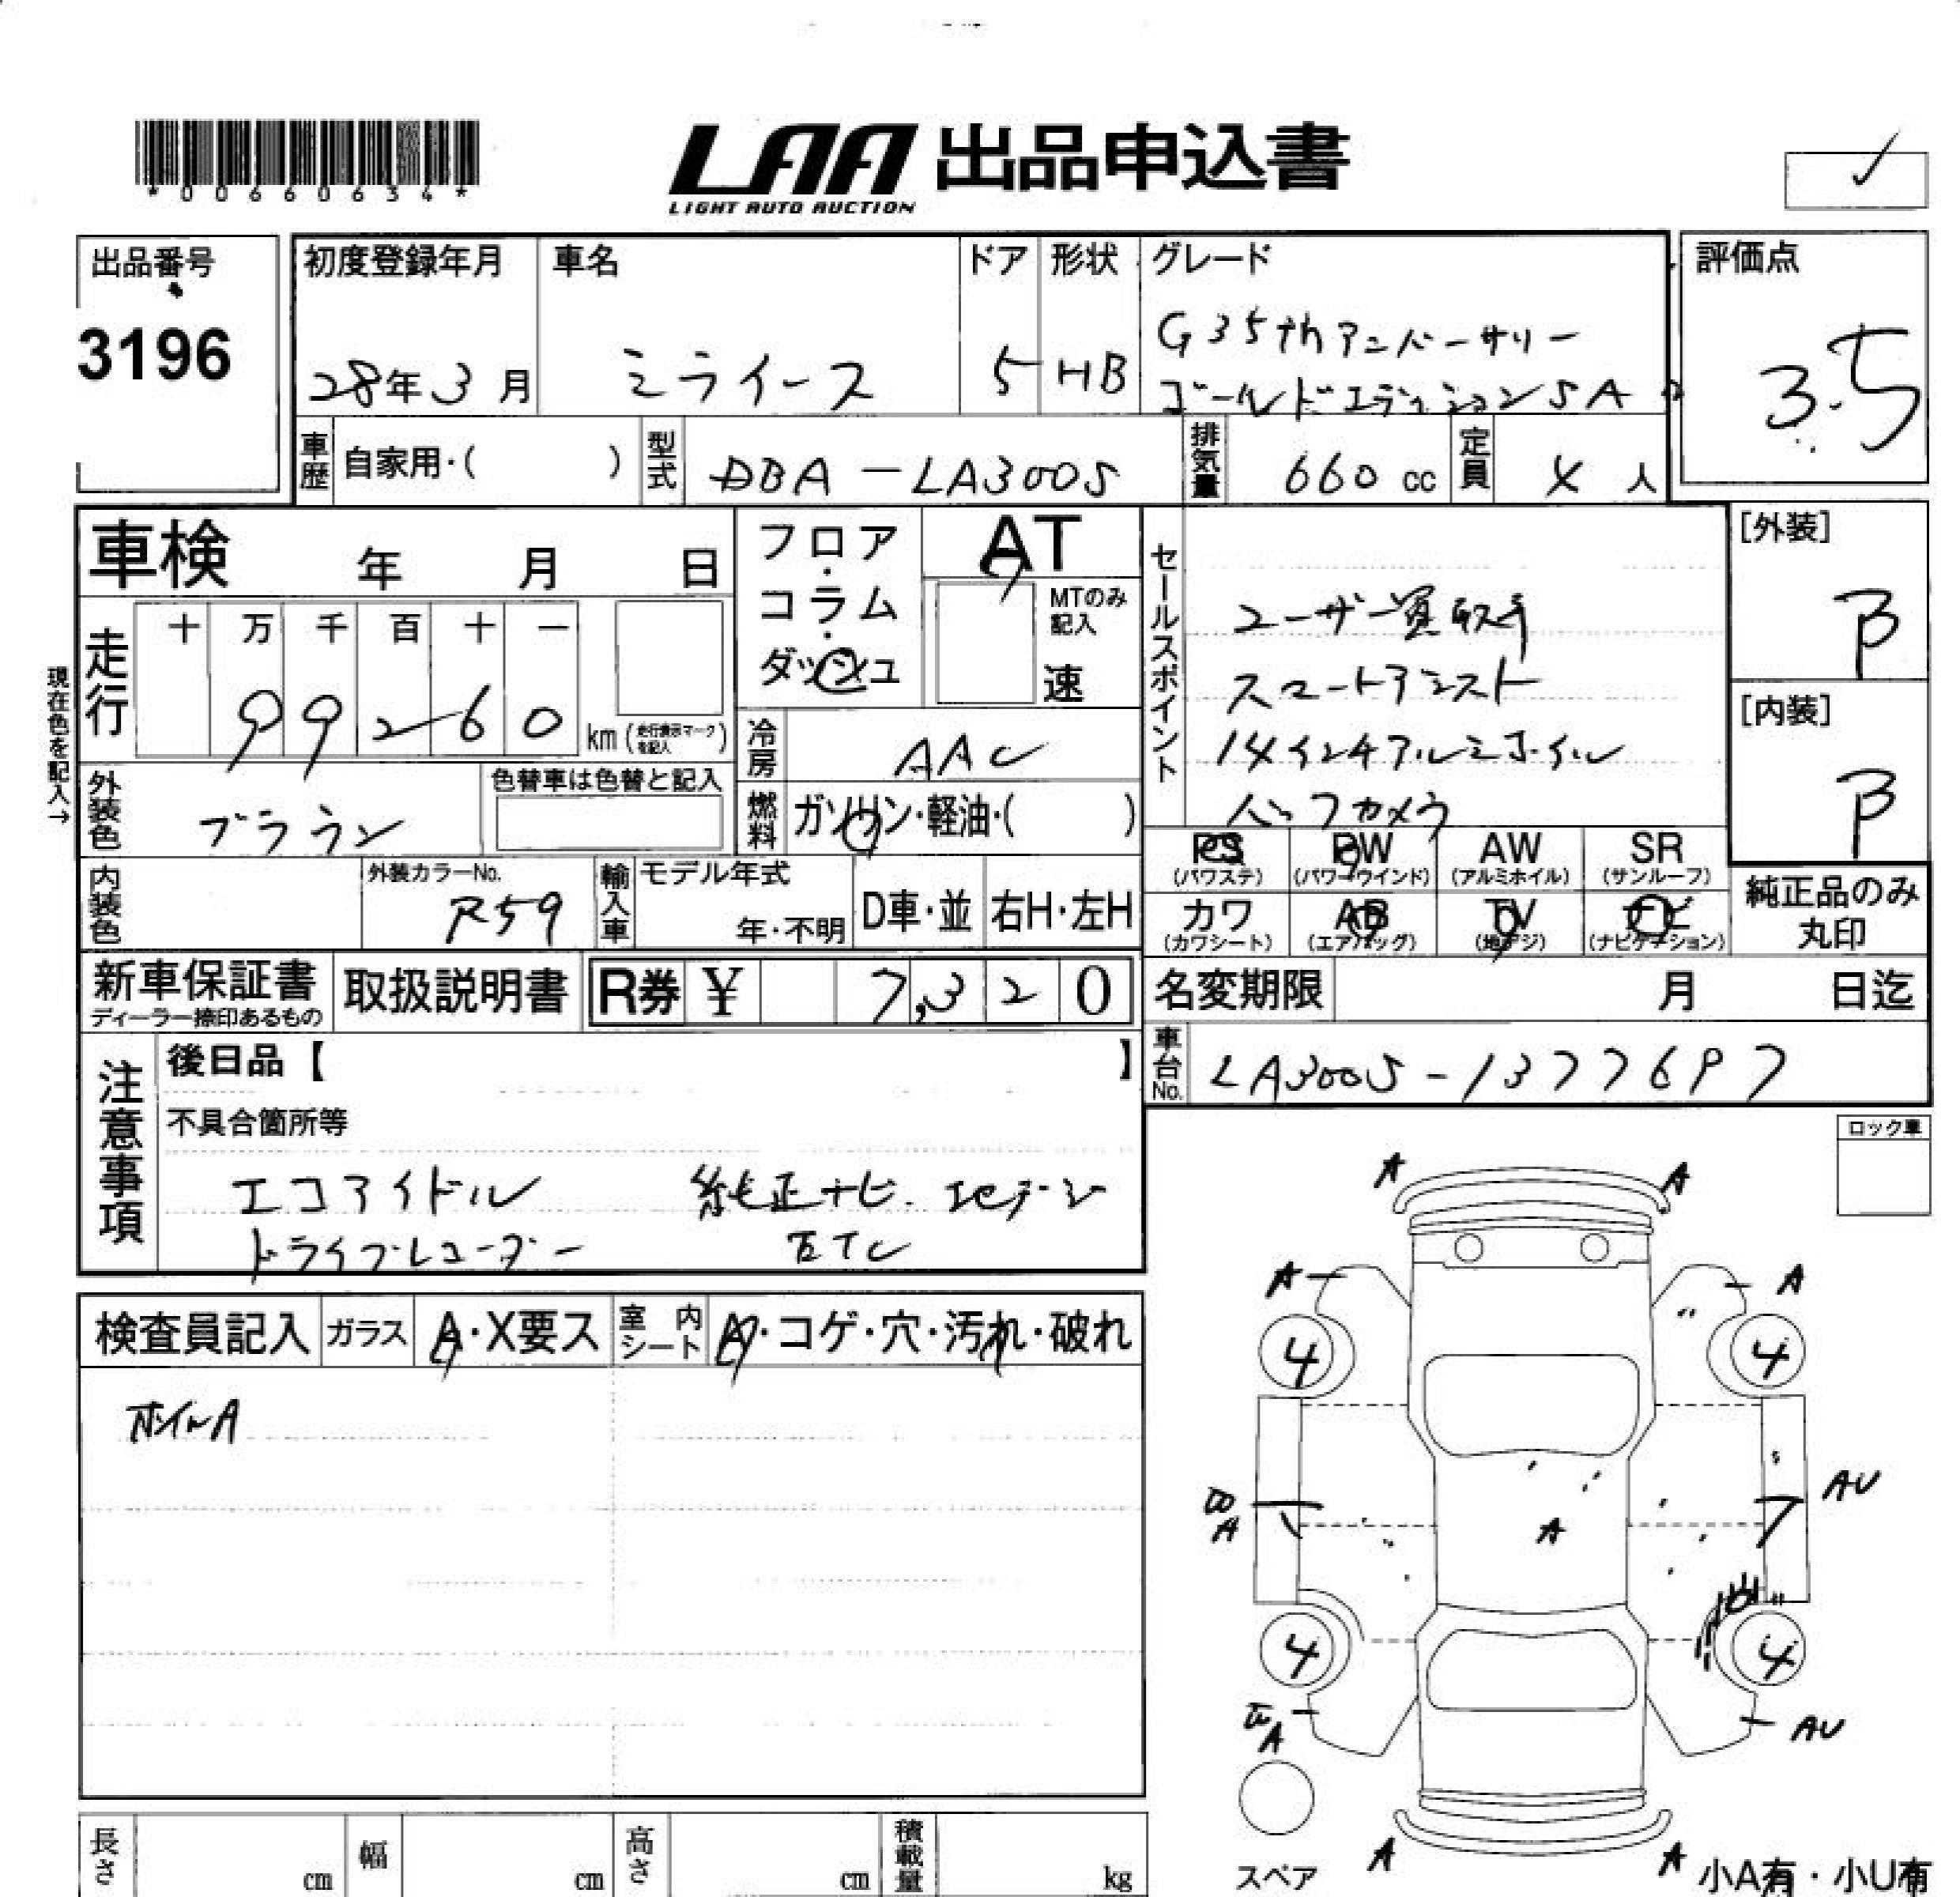 *00660634*
LAA 出品申込書
LIGHT AUTO AUCTION
✓
出品番号
3196
初度登録年月
28年3月
車名
ミライース
ドア
5
形状
HB
グレード
G35thアニバーサリー
ゴールドエディションSA
評価点
3.5
車歴
自家用・( )
型式
DBA-LA300S
排気量
660 cc
定員
4 人
車検 年 月 日
フロア・コラム・ダッシュ
AT
MTのみ記入
速
現在色を記入→
走行
十 万 千 百 十 一
99260
km (走行表示マークを記入)
冷房
AAC
外装色
ブラウン
色替車は色替と記入
燃料
ガソリン・軽油・( )
内装色
外装カラーNo.
R59
輸入車
モデル年式
年・不明
D車・並
右H・左H
セールスポイント
ユーザー買取車
スマートアシスト
14インチアルミホイル
バックカメラ
[外装]
B
[内装]
B
PS (パワステ)
PW (パワーウインド)
AW (アルミホイル)
SR (サンルーフ)
カワ (カワシート)
AB (エアバッグ)
TV (地デジ)
ナビ (ナビゲーション)
純正品のみ
丸印
新車保証書
ディーラー捺印あるもの
取扱説明書
R券 ¥ 7,320
名変期限 月 日迄
車台No.
LA300S-1377697
注意事項
後日品【 】
不具合箇所等
エコアイドル 純正ナビ.地デジ
ドライブレコーダー ETC
ロック車
検査員記入
ガラス
A・X要ス
室内シート
A・コゲ・穴・汚れ・破れ
ホイルA
A A
A A
4 4
A AU
A
4 4
A AU
スペア
A A
小A有・小U有
長さ cm
幅 cm
高さ cm
積載量 kg